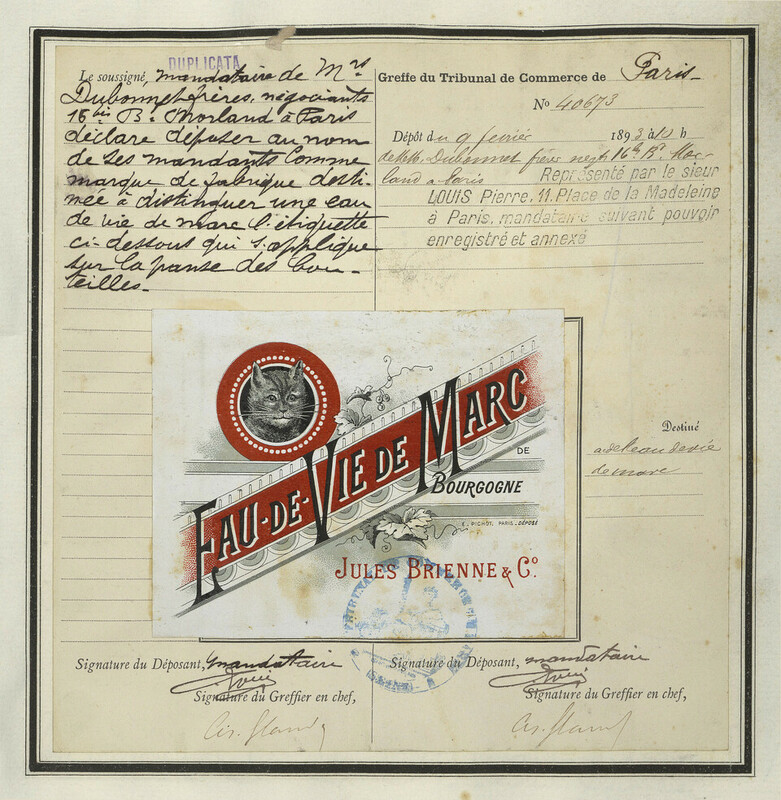 DUPLICATA
Le soussigné, mandataire de Mrs
Dubonnet frères, négociants
16 bis Bd Morland à Paris
déclare déposer au nom
de ses mandants comme
marque de fabrique desti-
née à distinguer une eau
de vie de marc l'étiquette
ci-dessous qui s'applique
sur la panse des bou-
teilles.-
Greffe du Tribunal de Commerce de Paris-
No 40673
Dépôt du 9 fevrier 1893 à 10 h
de MM. Dubonnet frères negts 16 bis Bd Mor-
land a Paris Représenté par le sieur
LOUIS Pierre, 11, Place de la Madeleine
à Paris, mandataire suivant pouvoir
enregistré et annexé
EAU-DE-VIE DE MARC
DE
BOURGOGNE
E. PICHOT, PARIS. DÉPOSÉ
JULES BRIENNE & Co.
Destiné
a de l'eau de vie
de marc
TRIBUNAL DE COMMERCE
SEINE
Signature du Déposant, mandataire
Louis
Signature du Greffier en chef,
Signature du Déposant, mandataire
Louis
Signature du Greffier en chef,